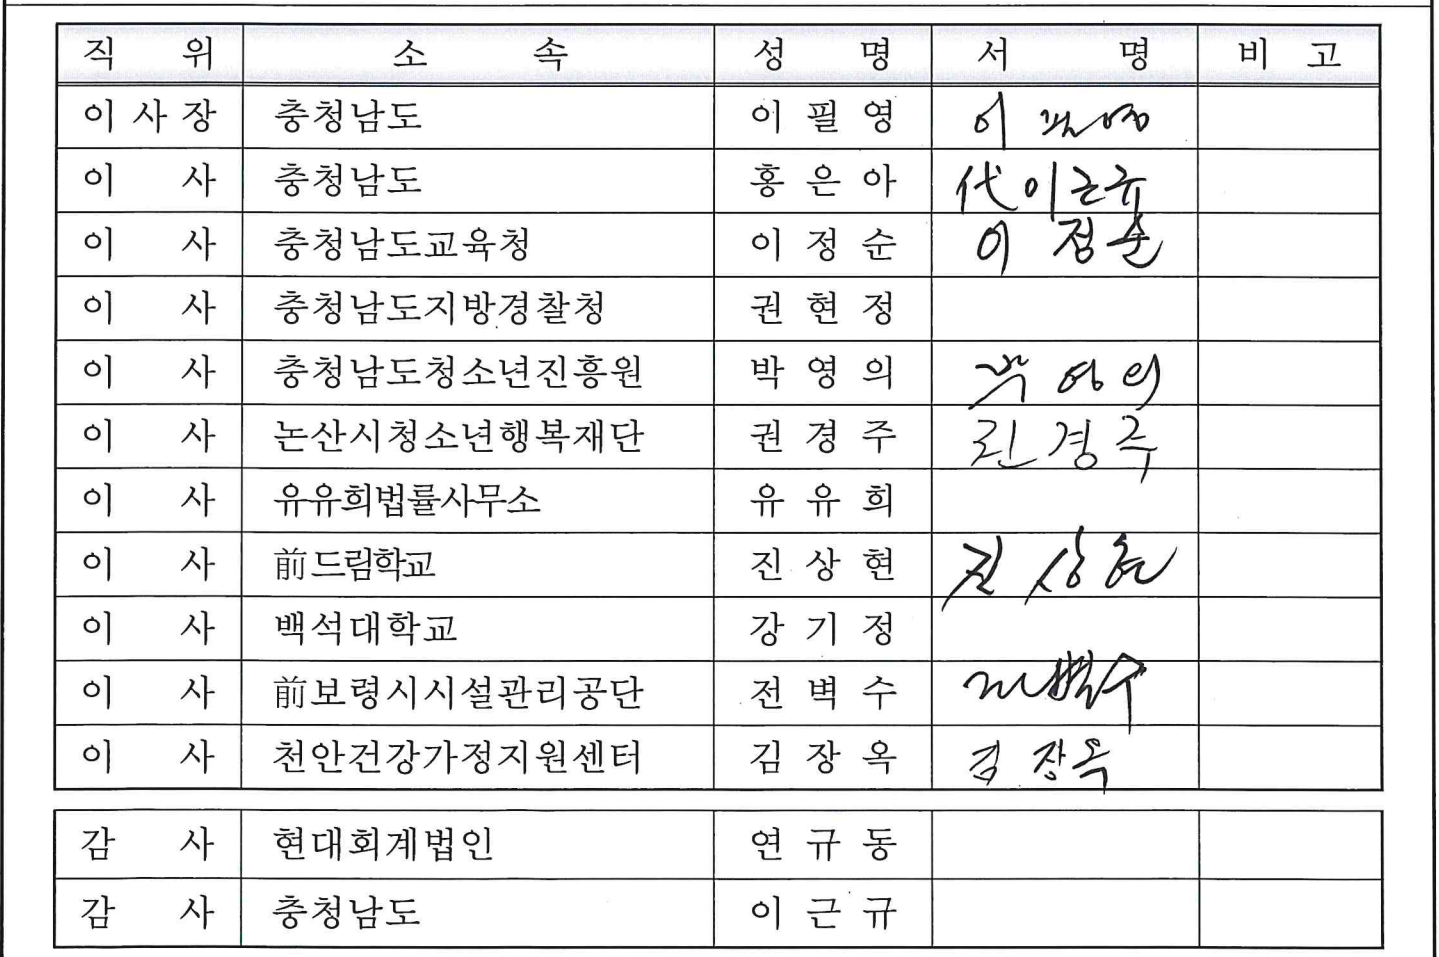 직 위 소 속 성 명 서 명 비 고
이 사 장 충청남도 이 필 영 이 필영
이 사 충청남도 홍 은 아 代 이근규
이 사 충청남도교육청 이 정 순 이 정순
이 사 충청남도지방경찰청 권 현 정
이 사 충청남도청소년진흥원 박 영 의 박 영 의
이 사 논산시청소년행복재단 권 경 주 권 경 주
이 사 유유희법률사무소 유 유 희
이 사 前드림학교 진 상 현 진 상 현
이 사 백석대학교 강 기 정
이 사 前보령시시설관리공단 전 벽 수 전벽수
이 사 천안건강가정지원센터 김 장 옥 김 장옥
감 사 현대회계법인 연 규 동
감 사 충청남도 이 근 규